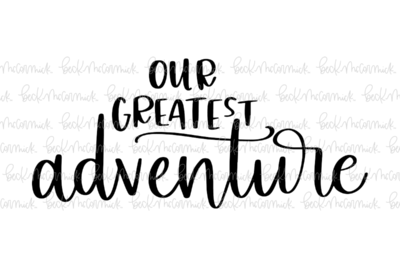 OUR
GREATEST
adventure